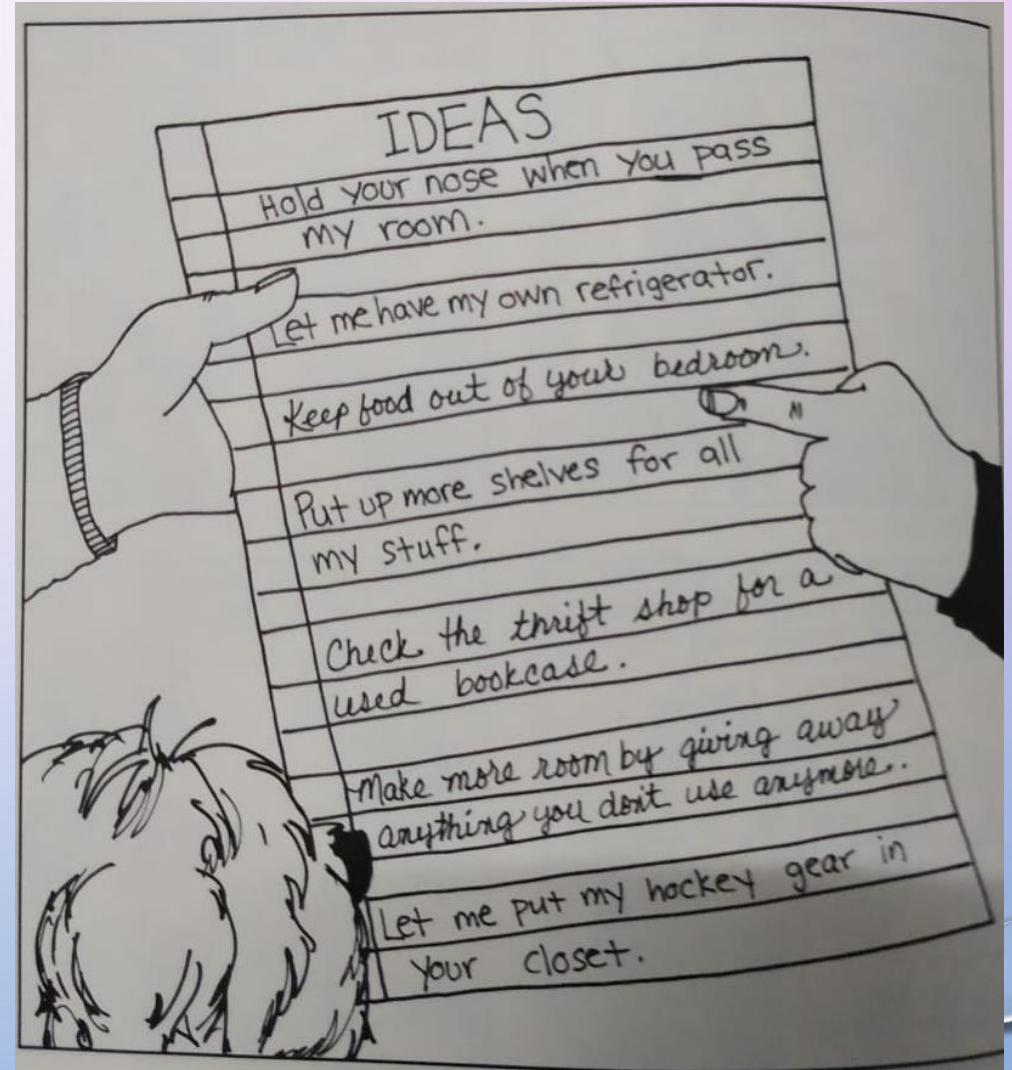 IDEAS
Hold your nose when you pass
my room.
Let me have my own refrigerator.
Keep food out of your bedroom.
Put up more shelves for all
my stuff.
Check the thrift shop for a
used bookcase.
Make more room by giving away
anything you don't use anymore.
Let me put my hockey gear in
your closet.